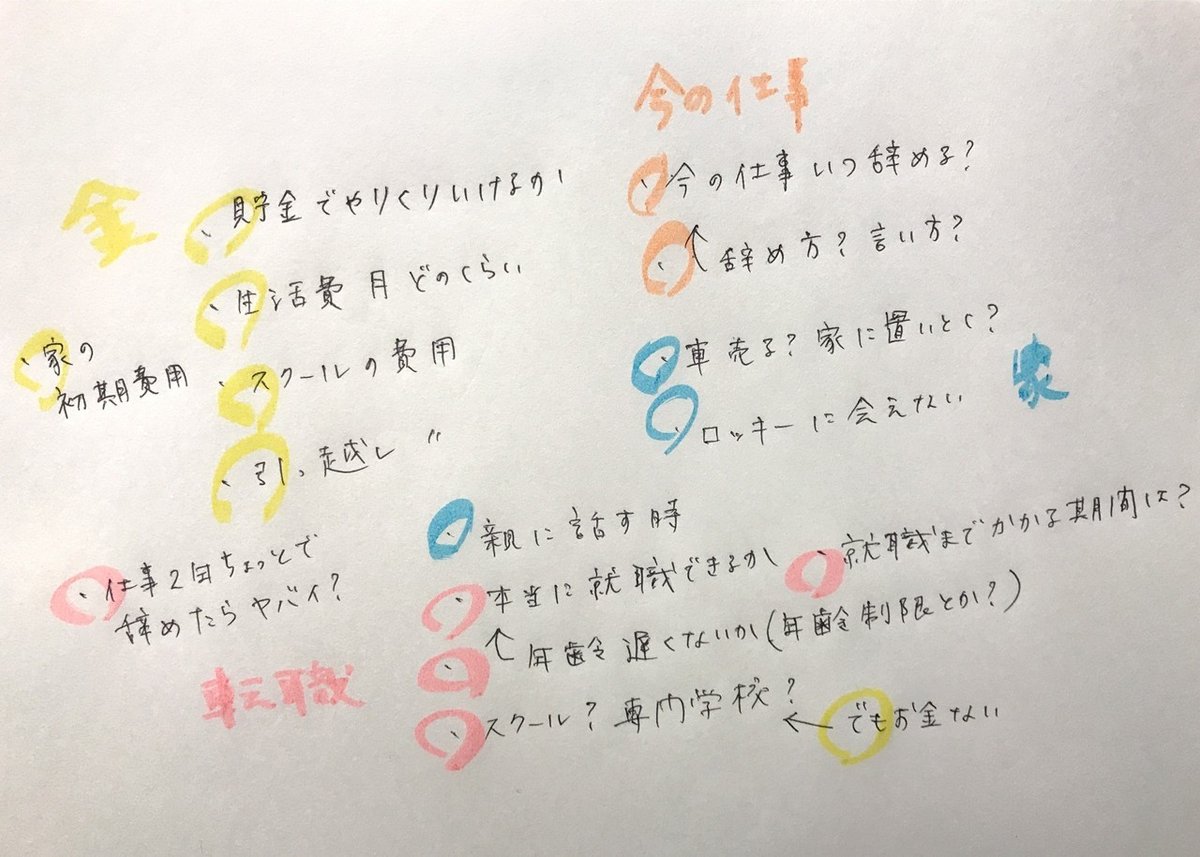 今の仕事
・今の仕事いつ辞める?
・↑辞め方?言い方?
金
・貯金でやりくりいけるか
・生活費月どのくらい
・家の
初期費用
・スクールの費用
・引っ越し〃
・車売る?家に置いとく?
・ロッキーに会えない
家
・親に話す時
・仕事2年ちょっとで
辞めたらヤバイ?
転職
・本当に就職できるか
・就職までかかる期間は?
・↑年齢遅くないか(年齢制限とか?)
・スクール?専門学校?
←でもお金ない